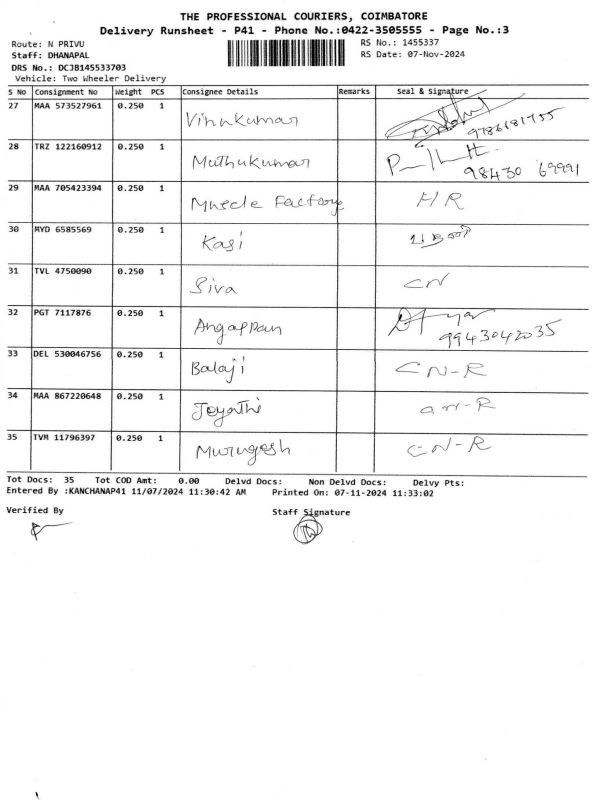 THE PROFESSIONAL COURIERS, COIMBATORE
Delivery Runsheet - P41 - Phone No.:0422-3505555 - Page No.:3
Route: N PRIVU RS No.: 1455337
Staff: DHANAPAL RS Date: 07-Nov-2024
DRS No.: DCJB145533703
Vehicle: Two Wheeler Delivery
S No Consignment No Weight PCS Consignee Details Remarks Seal & Signature
27 MAA 573527961 0.250 1 Vinukumar 9786181755
28 TRZ 122160912 0.250 1 Muthukumar 98430 69991
29 MAA 705423394 0.250 1 Muscle Factory HR
30 MYD 6585569 0.250 1 Kasi
31 TVL 4750090 0.250 1 Siva CN
32 PGT 7117876 0.250 1 Angappan 9943042035
33 DEL 530046756 0.250 1 Balaji CN-R
34 MAA 867220648 0.250 1 Joyathi
35 TVM 11796397 0.250 1 Murugesh CN-R
Tot Docs: 35 Tot COD Amt: 0.00 Delvd Docs: Non Delvd Docs: Delvy Pts:
Entered By :KANCHANAP41 11/07/2024 11:30:42 AM Printed On: 07-11-2024 11:33:02
Verified By Staff Signature